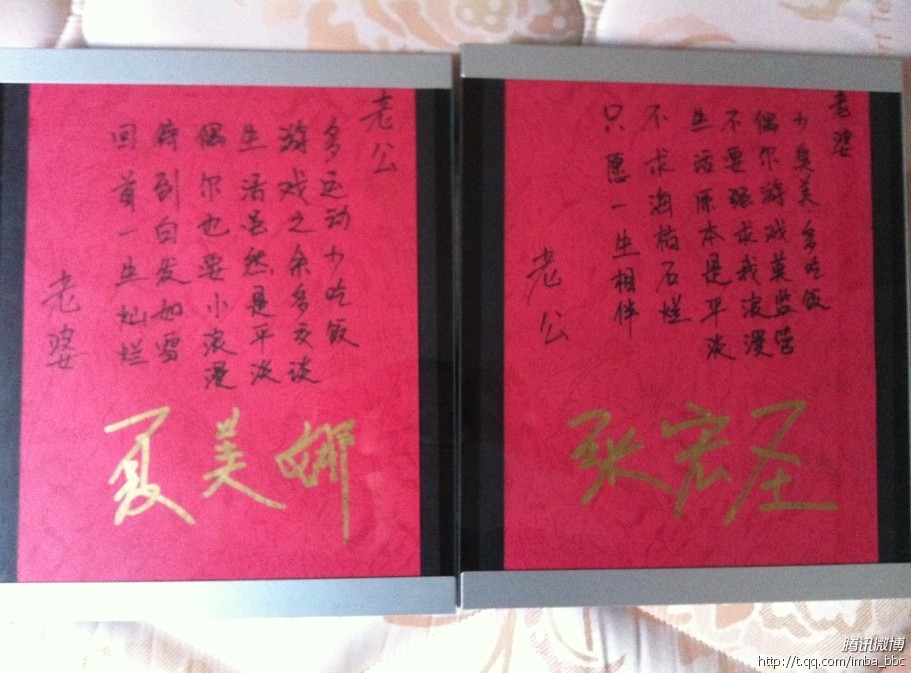 老公
多运动少吃饭
游戏之余多交谈
生活虽然是平淡
偶尔也要小浪漫
待到白发如雪
回首一生灿烂
老婆
夏美娜
老婆
少臭美多吃饭
偶尔游戏莫监营
不要强求我浪漫
生活原本是平淡
不求海枯石烂
只愿一生相伴
老公
张宏圣
腾讯微博
http://t.qq.com/imba_bbc